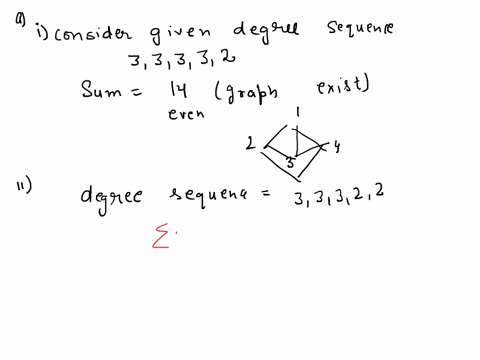 a) i) consider given degree sequence
3, 3, 3, 3, 2
Sum = 14 (graph exist)
even
1
2 3 4
ii) degree sequena = 3, 3, 3, 2, 2
Σ